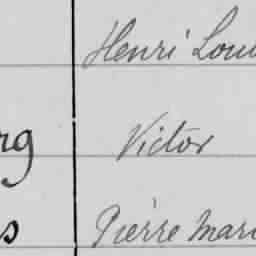 Henri Loui
rg Victor
s Pierre Mari